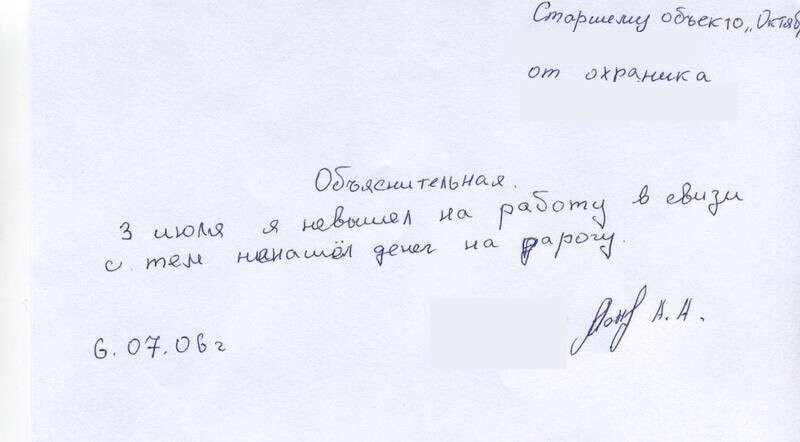 Старшему объекто „Октяб
от охраника
Объяснительная.
3 июля я невышел на работу в свизи
с тем ненашёл денег на дарогу.
А.А.
6.07.06 г